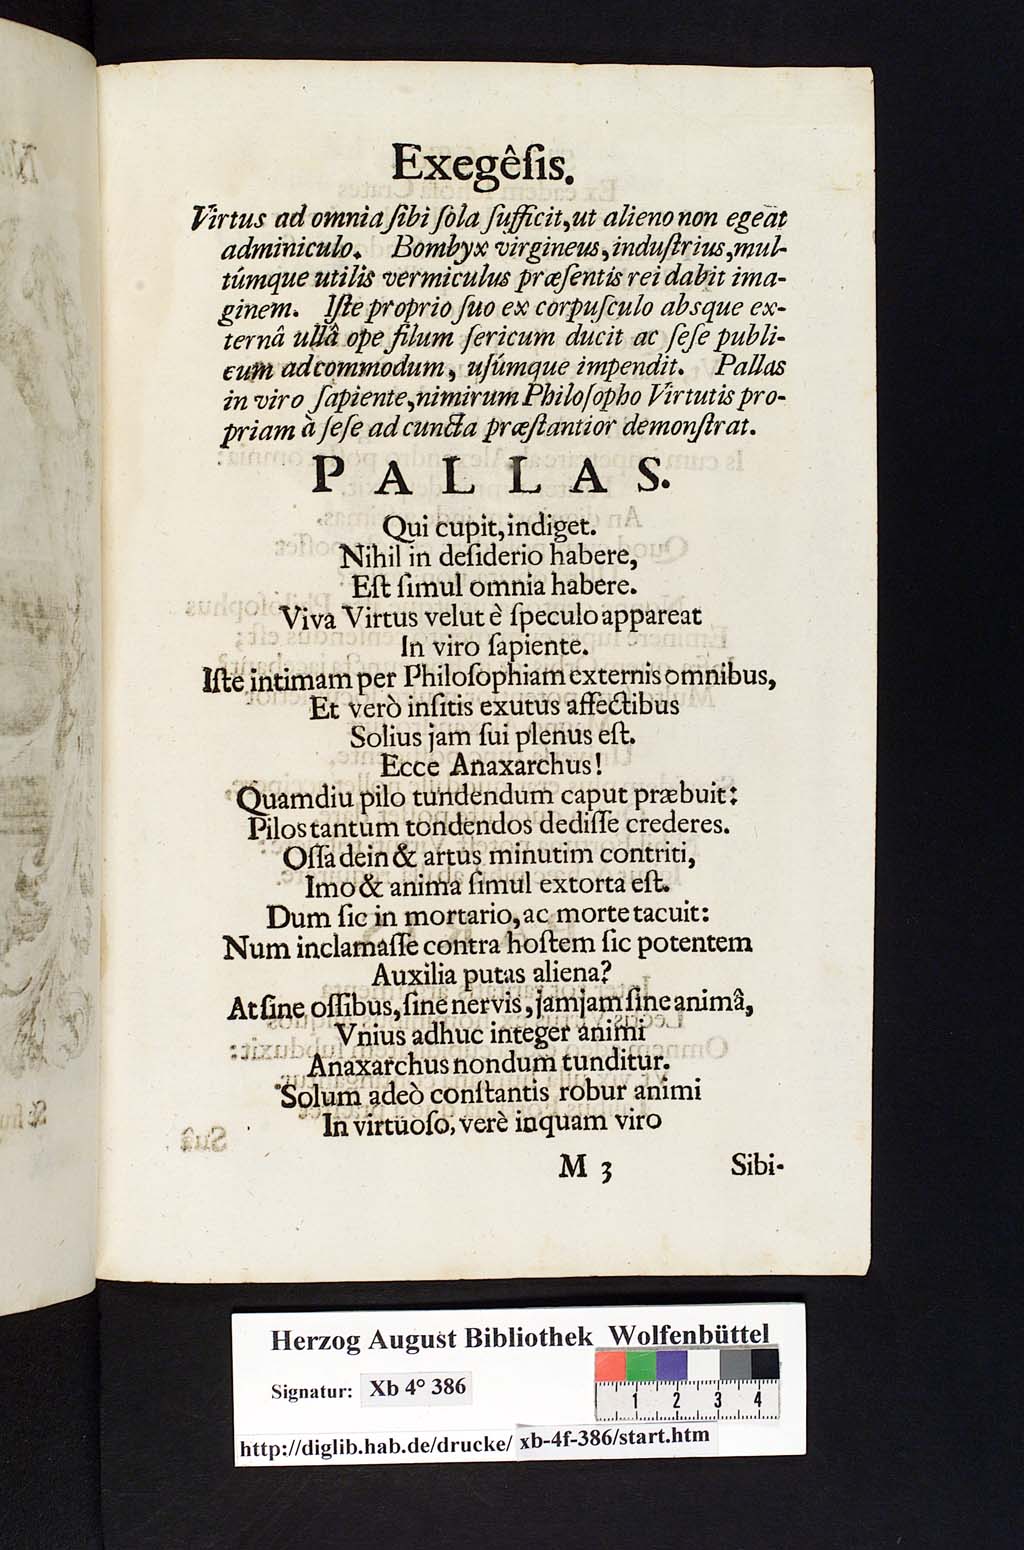 Exegêſis.
Virtus ad omnia ſibi ſola ſufficit, ut alieno non egeat
adminiculo. Bombyx virgineus, induſtrius, mul-
túmque utilis vermiculus præſentis rei dabit ima-
ginem. Iſte proprio ſuo ex corpuſculo absque ex-
ternâ ullâ ope filum ſericum ducit ac ſeſe publi-
cum ad commodum, uſúmque impendit. Pallas
in viro ſapiente, nimirum Philoſopho Virtutis pro-
priam à ſeſe ad cuncta præſtantior demonſtrat.
PALLAS.
Qui cupit, indiget.
Nihil in deſiderio habere,
Eſt ſimul omnia habere.
Viva Virtus velut è ſpeculo appareat
In viro ſapiente.
Iſte intimam per Philoſophiam externis omnibus,
Et verò inſitis exutus affectibus
Solius jam ſui plenus eſt.
Ecce Anaxarchus!
Quamdiu pilo tundendum caput præbuit:
Pilos tantum tondendos dediſſe crederes.
Oſſa dein & artus minutim contriti,
Imo & anima ſimul extorta eſt.
Dum ſic in mortario, ac morte tacuit:
Num inclamaſſe contra hoſtem ſic potentem
Auxilia putas aliena?
At ſine oſſibus, ſine nervis, jamjam ſine animâ,
Vnius adhuc integer animi
Anaxarchus nondum tunditur.
Solum adeò conſtantis robur animi
In virtuoſo, verè inquam viro
M 3 Sibi-
Herzog August Bibliothek Wolfenbüttel
Signatur: Xb 4° 386
1 2 3 4
http://diglib.hab.de/drucke/ xb-4f-386/start.htm